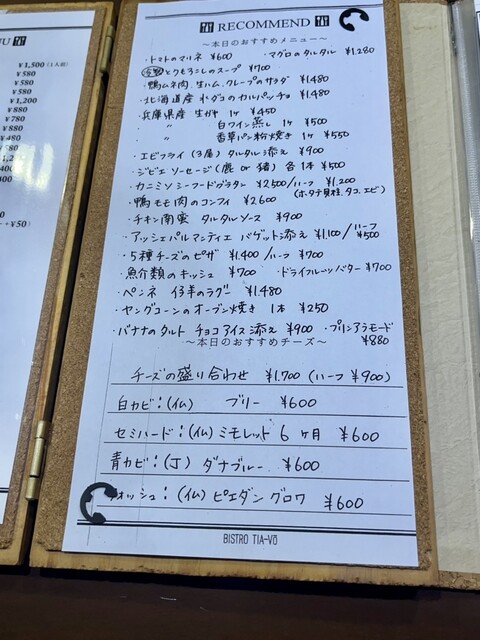 NU
¥1,500 (1人前)
¥580
¥580
¥580
¥1,200
¥880
¥780
¥880
¥480
RECOMMEND
〜本日のおすすめメニュー〜
・トマトのマリネ ¥600 ・マグロのタルタル ¥1,280
とうもろこしのスープ ¥700
・鴨ムネ肉、生ハム、グレープのサラダ ¥1,480
・北海道産 水ダコのカルパッチョ ¥1,480
・兵庫県産 生ガキ 1ヶ ¥450
〃 白ワイン蒸し 1ヶ ¥500
〃 香草パン粉焼き 1ヶ ¥550
・エビフライ (3尾) タルタル添え ¥900
・ジビエ ソーセージ(鹿 or 猪) 各1本 ¥500
・カニミソ シーフードグラタン ¥2,500/ハーフ ¥1,200
(ホタテ貝柱、タコ、エビ)
・鴨モモ肉のコンフィ ¥2,600
・チキン南蛮 タルタルソース ¥900
・アッシェパルマンティエ バゲット添え ¥1,100/ハーフ ¥500
・5種チーズのピザ ¥1,400/ハーフ ¥700
・魚介類のキッシュ ¥700 ・ドライフルーツバター ¥700
・ペンネ 仔羊のラグー ¥1,480
・ヤングコーンのオーブン焼き 1本 ¥250
・バナナのタルト チョコアイス添え ¥900 ・プリンアラモード ¥880
〜本日のおすすめチーズ〜
チーズの盛り合わせ ¥1,700 (ハーフ ¥900)
白カビ:(仏) ブリー ¥600
セミハード:(仏) ミモレット 6ヶ月 ¥600
青カビ:(J) ダナブルー ¥600
ォッシュ:(仏) ピエダングロワ ¥600
BISTRO TIA-VŌ